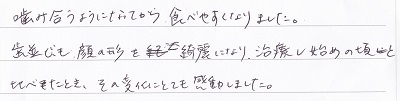 噛み合うようになってから、食べやすくなりました。
歯並びも、顔の形も綺麗になり、治療し始めの頃と
比べたとき、その変化にとても感動しました。